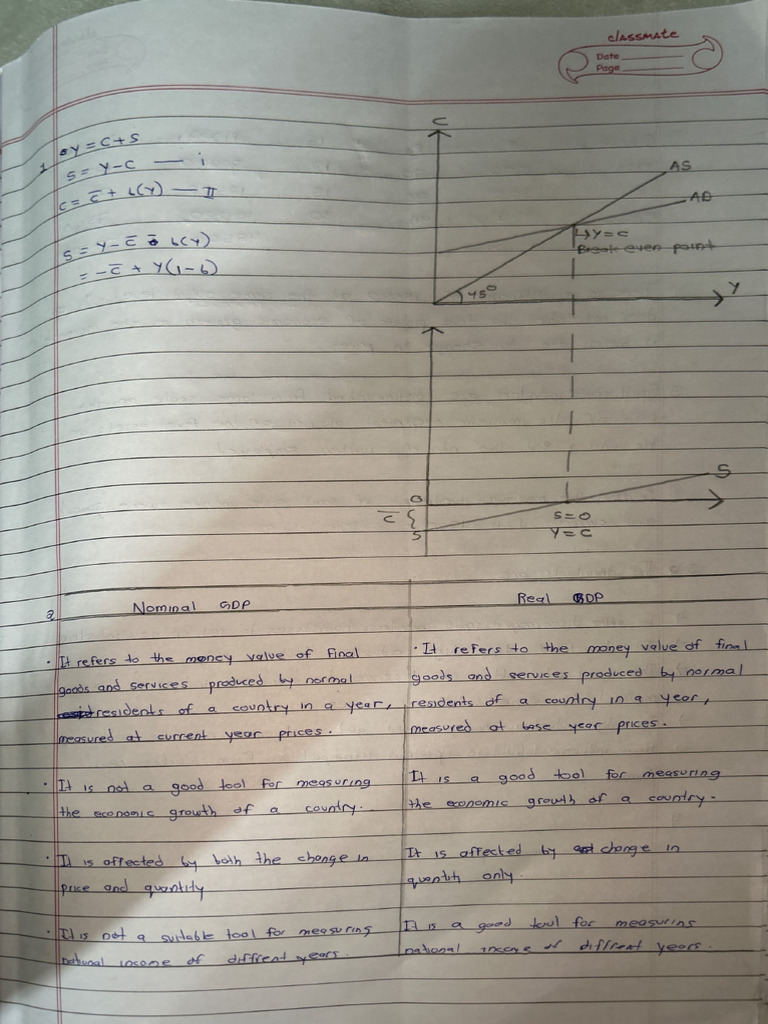 classmate
Date
Page
1 Y = C + S
S = Y - C — i
C = C̅ + b(Y) — II
S = Y - C̅ - b(Y)
= -C̅ + Y(1-b)
C
AS
AD
↳ Y = C
Break even point
45°
Y
O
C̅ {
S
S
S = O
Y = C
2
Nominal GDP
Real GDP
· It refers to the money value of final
goods and services produced by normal
residents of a country in a year,
measured at current year prices.
· It refers to the money value of final
goods and services produced by normal
residents of a country in a year,
measured at base year prices.
· It is not a good tool for measuring
the economic growth of a country.
It is a good tool for measuring
the economic growth of a country.
· It is affected by both the change in
price and quantity
It is affected by change in
quantity only.
· It is not a suitable tool for measuring
national income of diffrent years.
It is a good tool for measuring
national income of diffrent years.